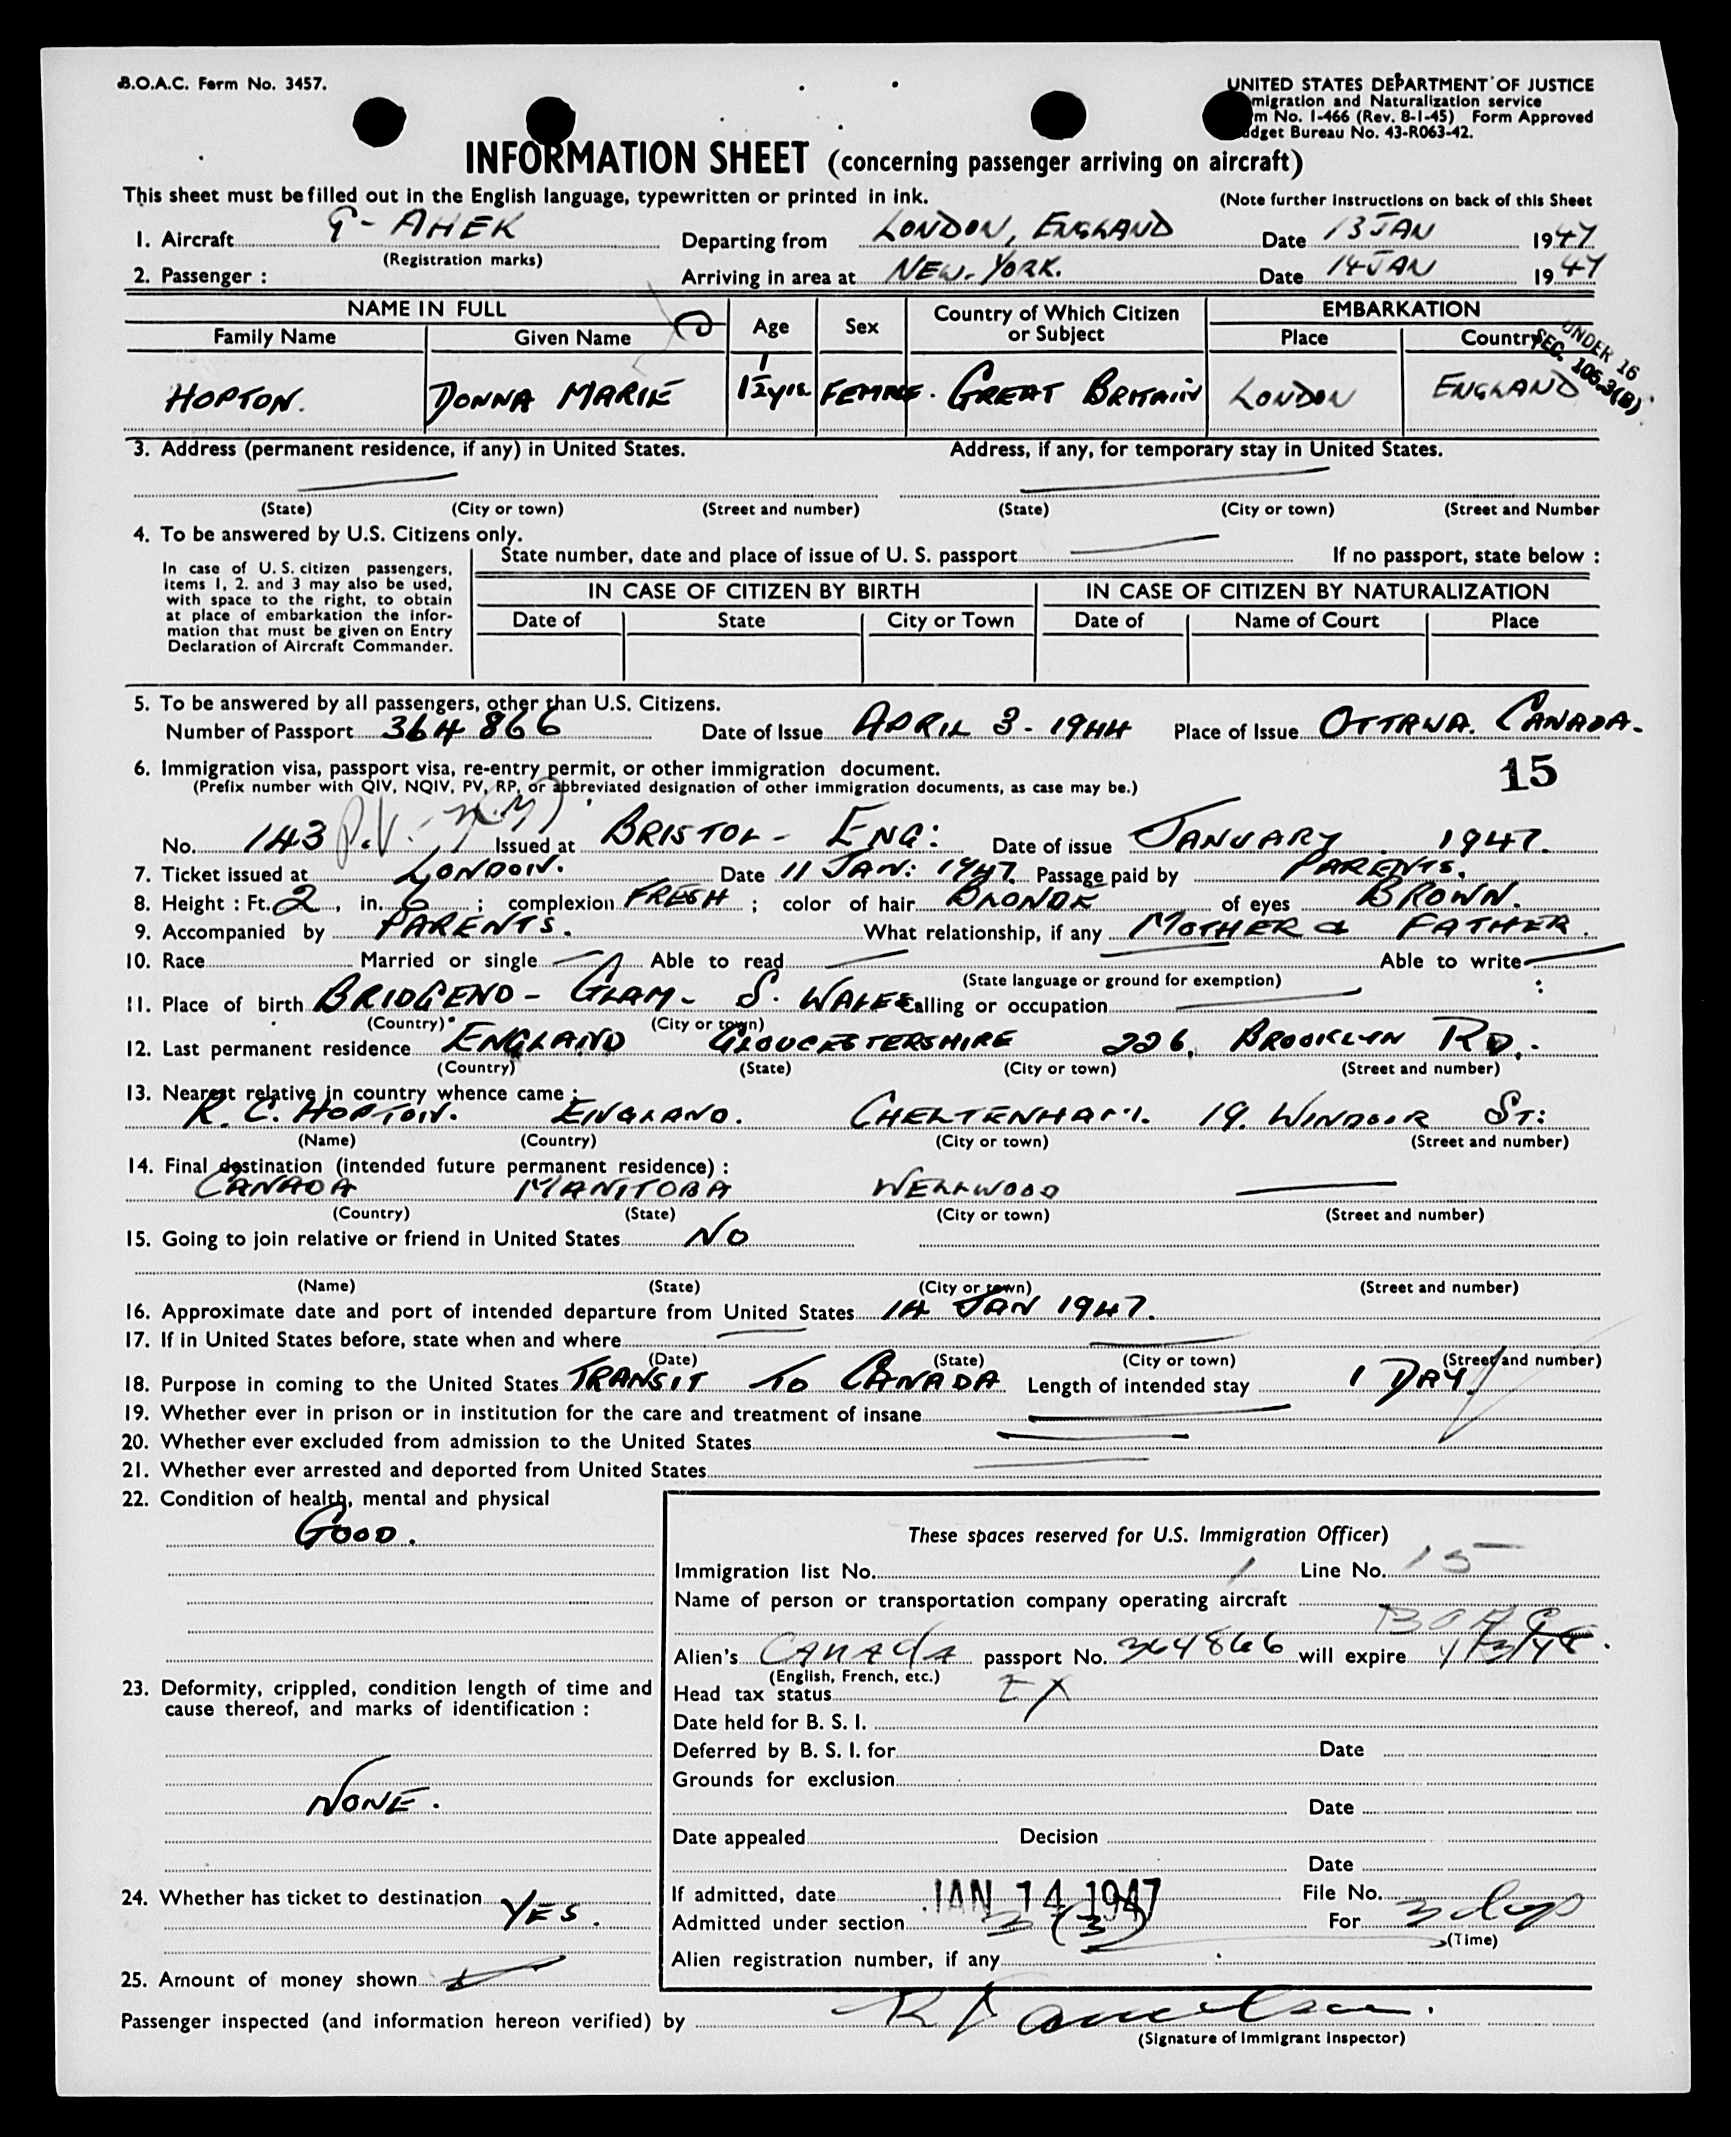 B.O.A.C. Form No. 3457.
UNITED STATES DEPARTMENT OF JUSTICE
migration and Naturalization service
m No. I-466 (Rev. 8-1-45) Form Approved
dget Bureau No. 43-R063-42.
INFORMATION SHEET (concerning passenger arriving on aircraft)
This sheet must be filled out in the English language, typewritten or printed in ink. (Note further instructions on back of this Sheet
1. Aircraft G-AHEK Departing from LONDON, ENGLAND Date 13 JAN 1947
(Registration marks)
2. Passenger : Arriving in area at NEW-YORK. Date 14 JAN 1947
NAME IN FULL Age Sex Country of Which Citizen or Subject EMBARKATION
Family Name Given Name Place Country
UNDER 16
SEC. 105.3(B)
HOPTON. DONNA MARIE 1½yrs FEMALE. GREAT BRITAIN LONDON ENGLAND
3. Address (permanent residence, if any) in United States. Address, if any, for temporary stay in United States.
(State) (City or town) (Street and number) (State) (City or town) (Street and Number
4. To be answered by U.S. Citizens only.
State number, date and place of issue of U. S. passport If no passport, state below :
In case of U. S. citizen passengers,
items 1, 2. and 3 may also be used,
with space to the right, to obtain
at place of embarkation the infor-
mation that must be given on Entry
Declaration of Aircraft Commander.
IN CASE OF CITIZEN BY BIRTH IN CASE OF CITIZEN BY NATURALIZATION
Date of State City or Town Date of Name of Court Place
5. To be answered by all passengers, other than U.S. Citizens.
Number of Passport 364866 Date of Issue APRIL 3-1944 Place of Issue OTTAWA. CANADA.
6. Immigration visa, passport visa, re-entry permit, or other immigration document. 15
(Prefix number with QIV, NQIV, PV, RP, or abbreviated designation of other immigration documents, as case may be.)
No. 143 P.V. Issued at BRISTOL - ENG: Date of issue JANUARY 1947.
7. Ticket issued at LONDON. Date 11 JAN: 1947 Passage paid by PARENTS.
8. Height : Ft. 2, in. 6 ; complexion FRESH ; color of hair BLONDE of eyes BROWN.
9. Accompanied by PARENTS. What relationship, if any MOTHER & FATHER.
10. Race Married or single Able to read Able to write
(State language or ground for exemption)
11. Place of birth BRIDGEND - GLAM - S. WALES Calling or occupation
(Country) (City or town)
12. Last permanent residence ENGLAND GLOUCESTERSHIRE 226, BROOKLYN RD.
(Country) (State) (City or town) (Street and number)
13. Nearest relative in country whence came :
R. C. HOPTON. ENGLAND. CHELTENHAM. 19. WINDSOR ST:
(Name) (Country) (City or town) (Street and number)
14. Final destination (intended future permanent residence) :
CANADA MANITOBA WELLWOOD
(Country) (State) (City or town) (Street and number)
15. Going to join relative or friend in United States NO
(Name) (State) (City or town) (Street and number)
16. Approximate date and port of intended departure from United States 14 JAN 1947.
17. If in United States before, state when and where
(Date) (State) (City or town) (Street and number)
18. Purpose in coming to the United States TRANSIT TO CANADA Length of intended stay 1 DAY
19. Whether ever in prison or in institution for the care and treatment of insane
20. Whether ever excluded from admission to the United States
21. Whether ever arrested and deported from United States
22. Condition of health, mental and physical
GOOD.
23. Deformity, crippled, condition length of time and
cause thereof, and marks of identification :
NONE.
24. Whether has ticket to destination YES.
25. Amount of money shown
These spaces reserved for U.S. Immigration Officer)
Immigration list No. 1 Line No. 15
Name of person or transportation company operating aircraft
BOAC
Alien's CANADA passport No. 364866 will expire
(English, French, etc.)
Head tax status EX
Date held for B. S. I.
Deferred by B. S. I. for Date
Grounds for exclusion
Date
Date appealed Decision
Date
If admitted, date JAN 14 1947 File No.
Admitted under section 3 (3) For 3 days
(Time)
Alien registration number, if any
Passenger inspected (and information hereon verified) by
(Signature of Immigrant Inspector)